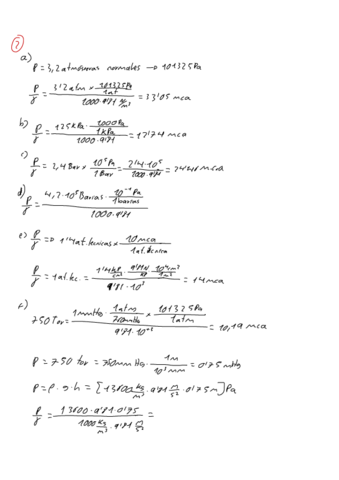 2
a)
P = 3,2 atmósferas normales → 101325 Pa
P/γ = (3'2 atm × 101325 Pa / 1 at) / (1000 · 9'81 N/m³) = 33'05 mca
b) P/γ = (125 KPa · 1000 Pa / 1 KPa) / (1000 · 9'81) = 12'74 mca
c) P/γ = 2,4 Bar × 10⁵ Pa / 1 Bar = 2'4·10⁵ / 1000·9'81 = 24'46 mca
d) P/γ = (4,2·10⁵ Barias · 10⁻¹ Pa / 1 barias) / (1000 · 9'81)
e) P/γ => 1'4 at. técnicas × 10 mca / 1 at. técnica
P/γ = 1 at. tc. = / (9'81 · 10³) = 14 mca
750 Tor = (1 mmHg · 1 atm / 760 mmHg × 101325 Pa / 1 atm) / = 10,19 mca
P = 750 tor = 750 mm Hg · 1 m / 10³ mm = 0'75 mHg
P = ρ · g · h = [13600 kg/m³ · 9'81 m/s² · 0'75 m] Pa
P/γ = (13600 · 9'81 · 0'75) / (1000 kg/m³ · 9'81 m/s²) =